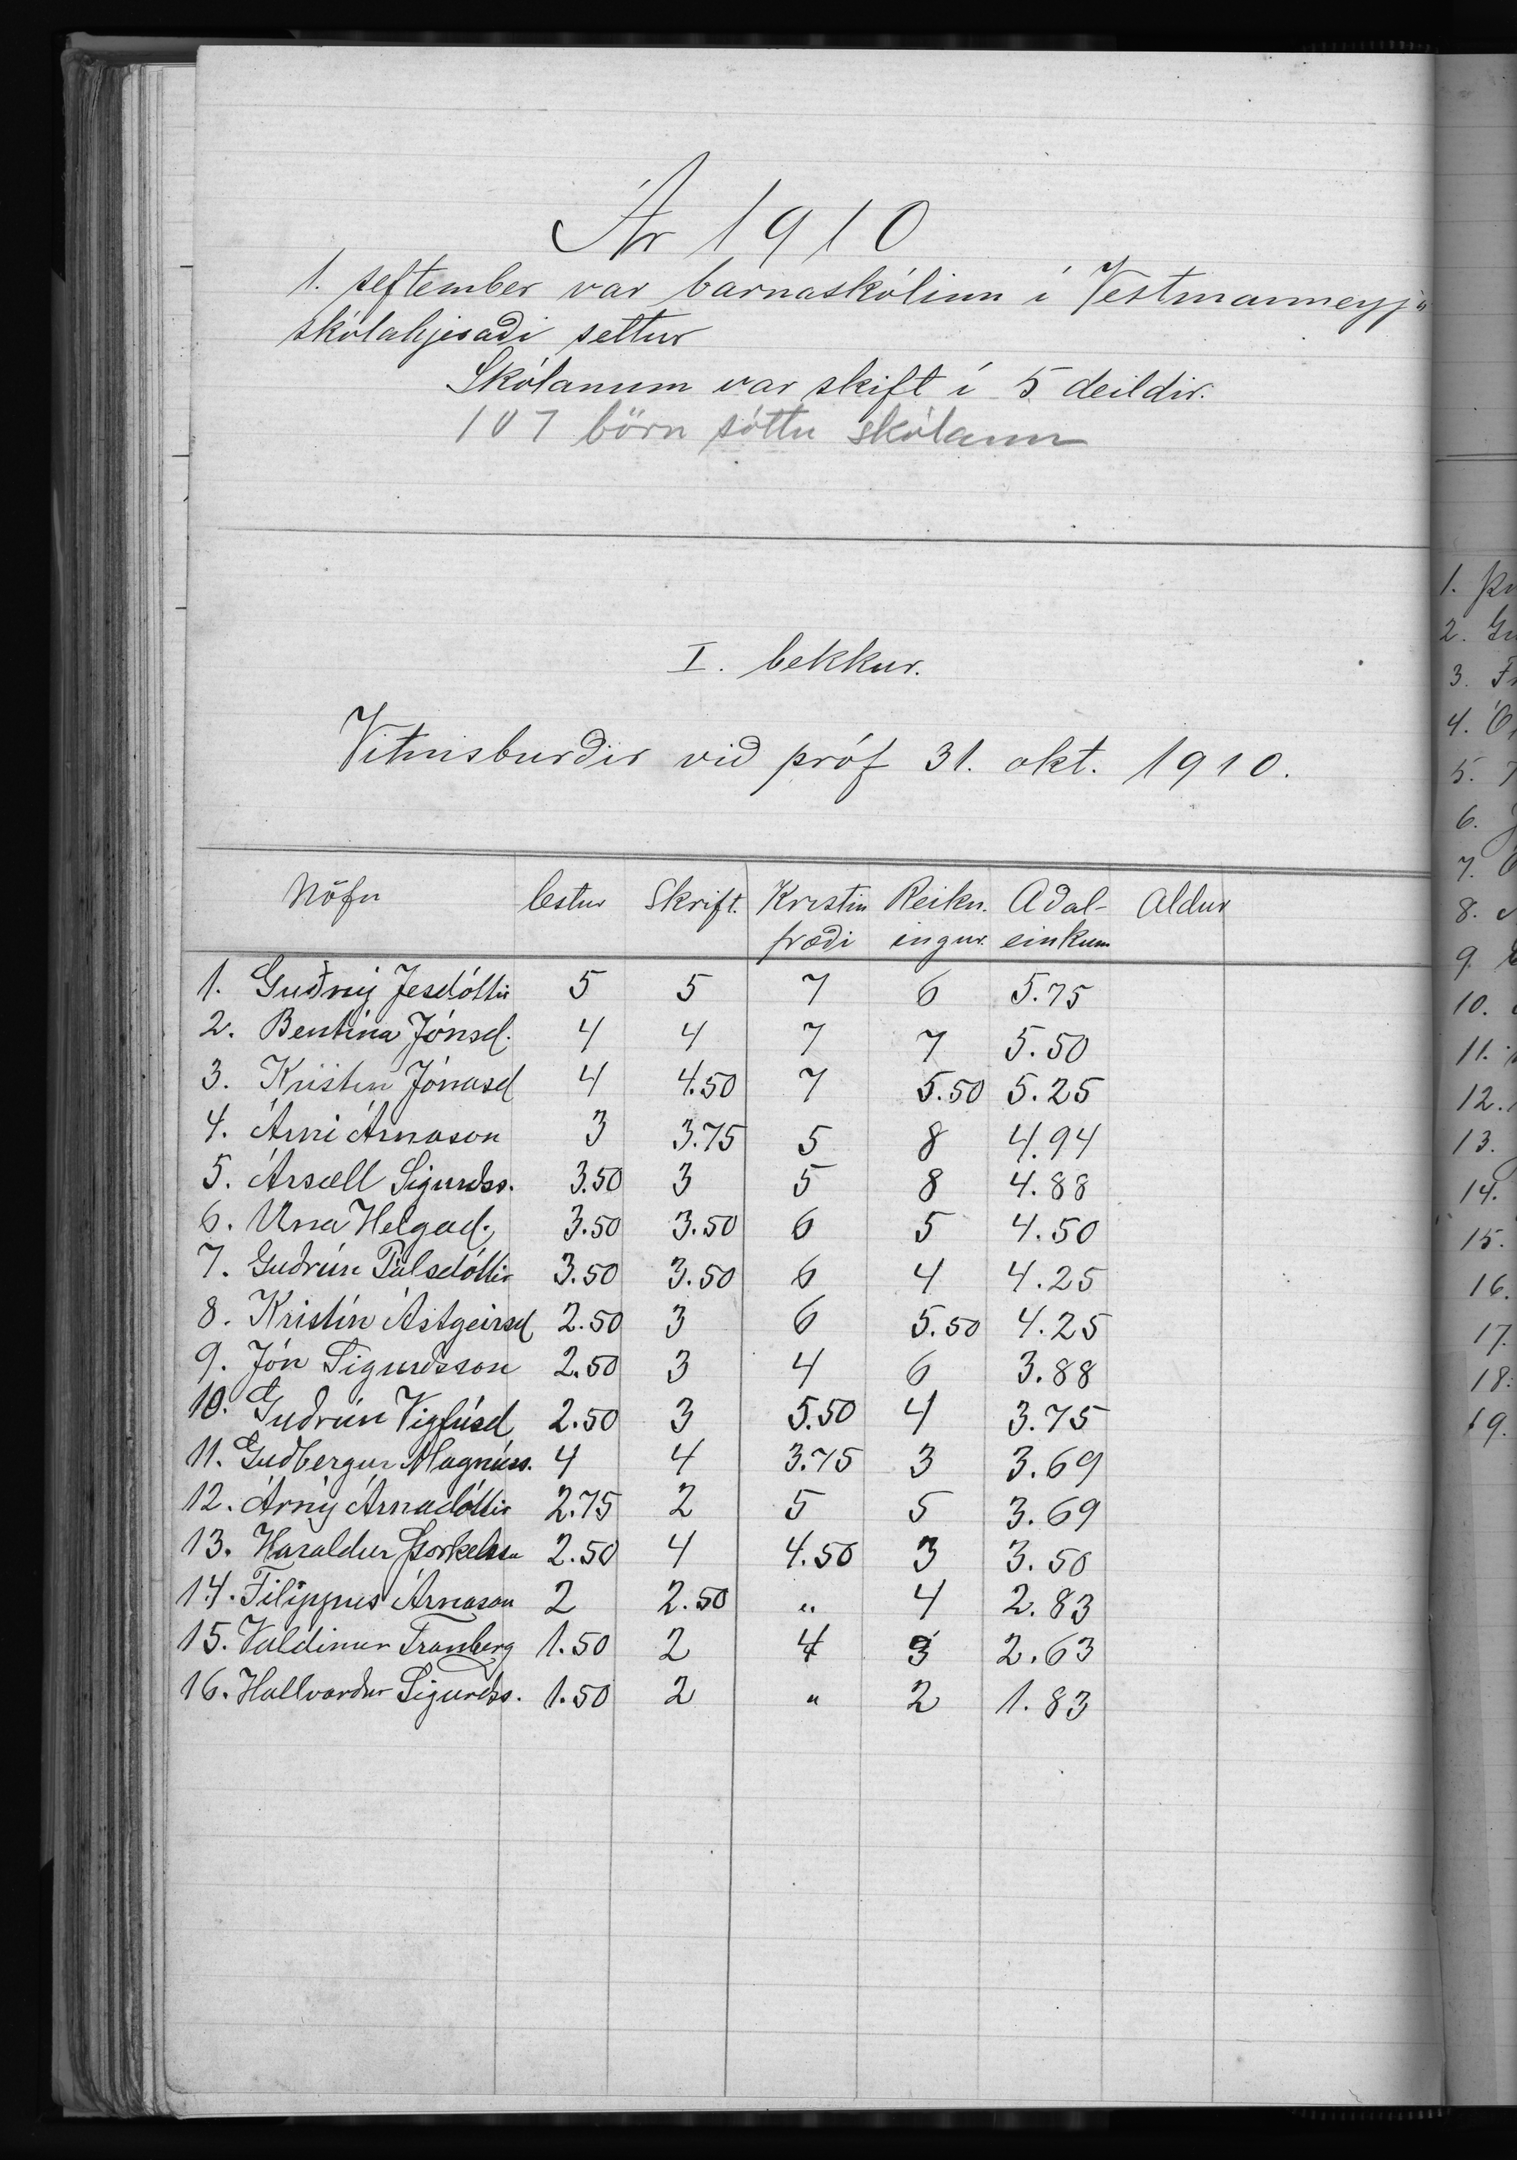 Ár 1910
1. september var barnaskólinn í Vestmanneyja
skólahjeraði settur
Skólanum var skift í 5 deildir.
107 börn sóttu skólann
I. bekkur.
Vitnisburðir við próf 31. okt. 1910.
Nöfn lestur Skrift. Kristin fræði Reikn. ingur. Aðal- einkum Aldur
1. Guðný Jesdóttir 5 5 7 6 5.75
2. Bentína Jónsd. 4 4 7 7 5.50
3. Kristín Jónasd 4 4.50 7 5.50 5.25
4. Árni Árnason 3 3.75 5 8 4.94
5. Ársæll Sigurðss. 3.50 3 5 8 4.88
6. Una Helgad. 3.50 3.50 6 5 4.50
7. Guðrún Pálsdóttir 3.50 3.50 6 4 4.25
8. Kristín Ástgeirsd 2.50 3 6 5.50 4.25
9. Jón Sigurðsson 2.50 3 4 6 3.88
10. Guðrún Vigfúsd 2.50 3 5.50 4 3.75
11. Guðbergur Magnúss. 4 4 3.75 3 3.69
12. Árný Árnadóttir 2.75 2 5 5 3.69
13. Haraldur Þorkelsson 2.50 4 4.50 3 3.50
14. Filippus Árnason 2 2.50 „ 4 2.83
15. Valdimar Tranberg 1.50 2 4 3 2.63
16. Hallvarður Sigurðss. 1.50 2 „ 2 1.83
1.
2.
3.
4.
5.
6.
7.
8.
9.
10.
11.
12.
13.
14.
15.
16.
17.
18.
19.